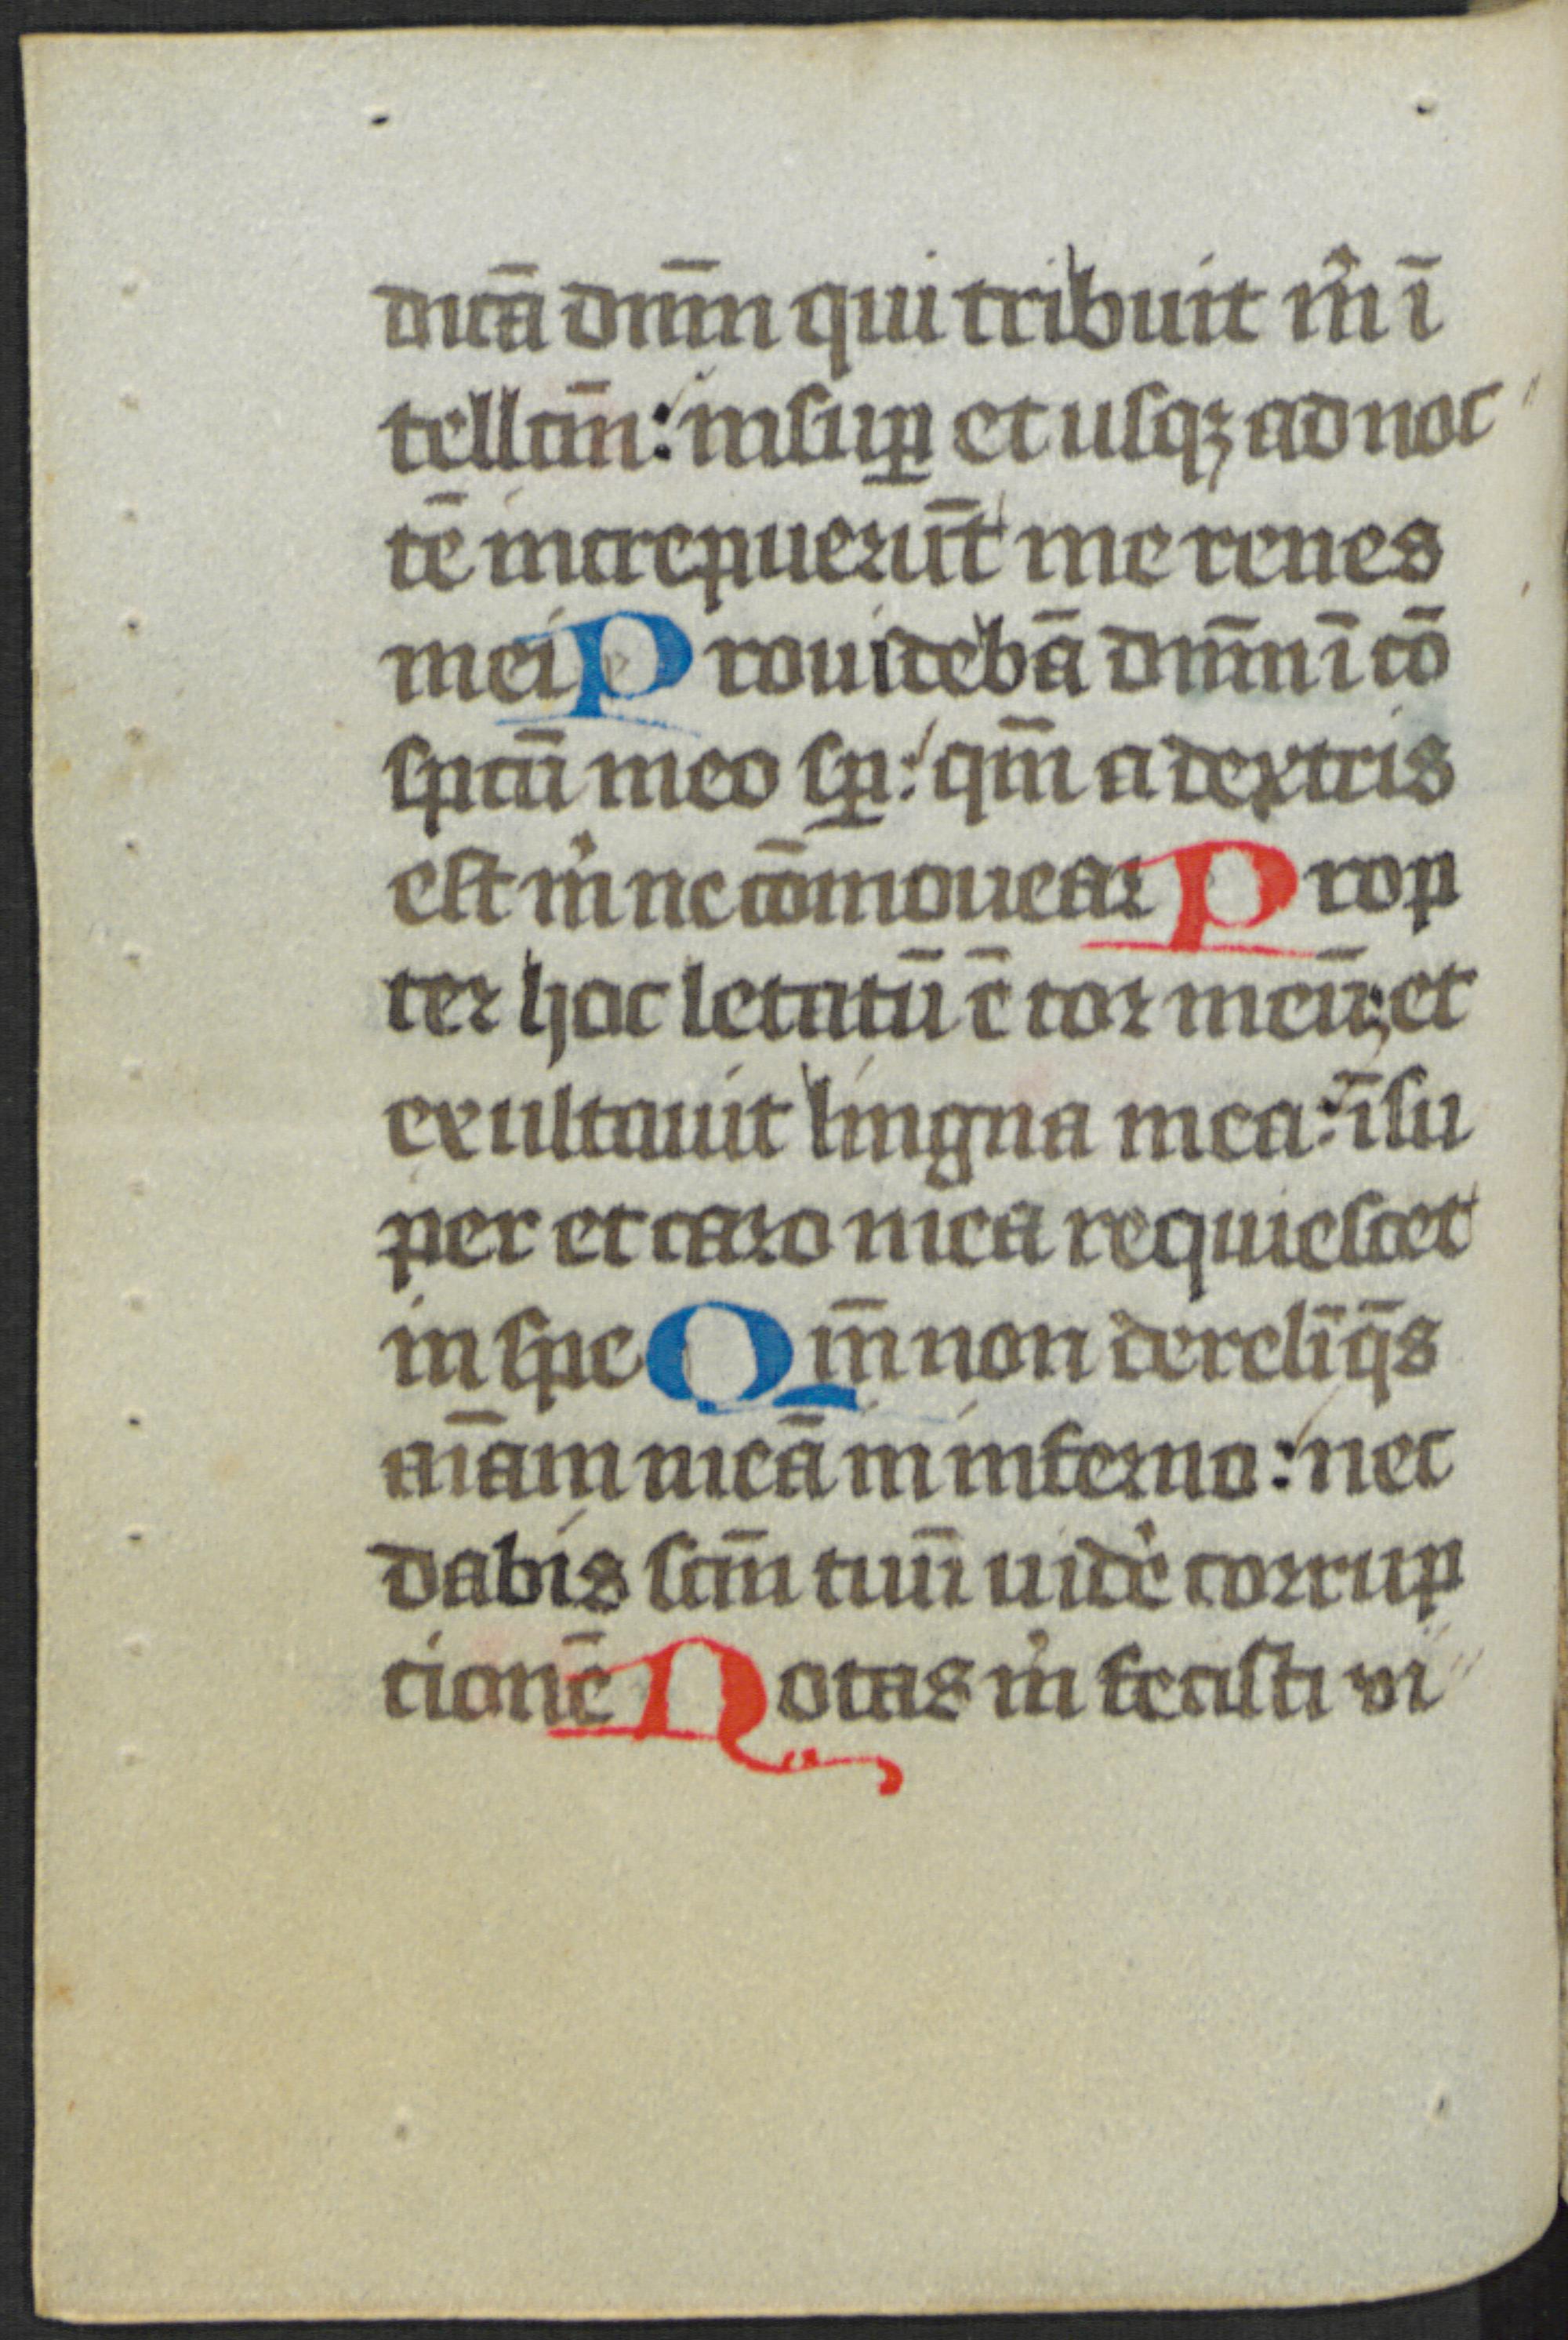 dicā dnm̄ qui tribuit m̊ ī
tellcm̄: insuꝑ et usqꝫ ad noc
tē increpuerūt me renes
mei Prouidebā dnm̄ ī cō
spcū meo sꝑ: qm̄ a dextris
est m̊ ne cōmouear Prop
ter hoc letatū ē cor meū: et
exultauit lingna mea: īsu
per et caro mea requiescet
in spe Qm̄ non derelīq̄s
aīam meā in inferno: nec
dabis scm̄ tuū uide᷑ corrup
cionē Notas m̊ fecisti vi